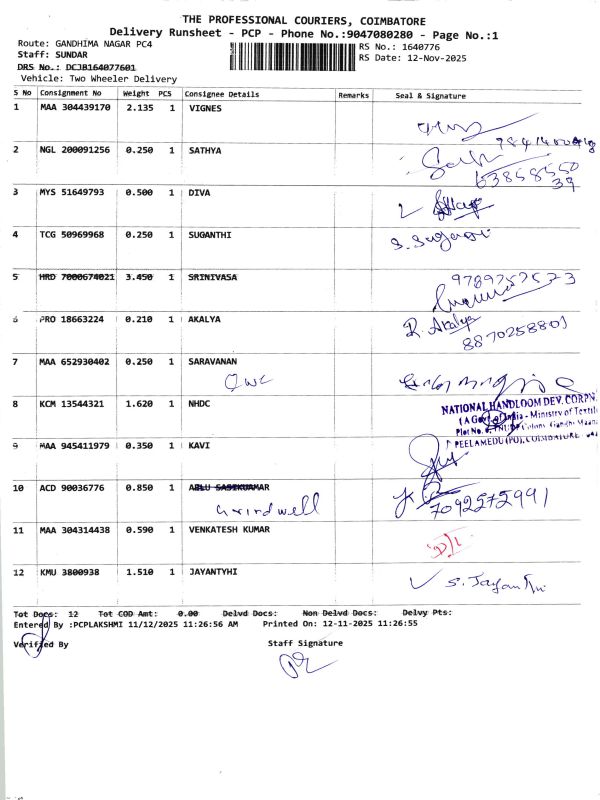 THE PROFESSIONAL COURIERS, COIMBATORE
Delivery Runsheet - PCP - Phone No.:9047080280 - Page No.:1
Route: GANDHIMA NAGAR PC4
RS No.: 1640776
Staff: SUNDAR
RS Date: 12-Nov-2025
DRS No.: DCJB164077601
Vehicle: Two Wheeler Delivery
S No Consignment No Weight PCS Consignee Details Remarks Seal & Signature
1 MAA 304439170 2.135 1 VIGNES
2 NGL 200091256 0.250 1 SATHYA
6385855039
3 MYS 51649793 0.500 1 DIVA
4 TCG 50969968 0.250 1 SUGANTHI
5 HRD 7000674021 3.450 1 SRINIVASA
9789757573
6 PRO 18663224 0.210 1 AKALYA
R. Akalya
8870258801
7 MAA 652930402 0.250 1 SARAVANAN
8 KCM 13544321 1.620 1 NHDC
NATIONAL HANDLOOM DEV. CORPN.
(A Govt. of India - Ministry of Textil
PEELAMEDU (PO), COIMBATORE
9 MAA 945411979 0.350 1 KAVI
10 ACD 90036776 0.850 1
Grindwell
7092572991
11 MAA 304314438 0.590 1 VENKATESH KUMAR
D/L
12 KMU 3800938 1.510 1 JAYANTYHI
Tot Docs: 12 Tot COD Amt: 0.00 Delvd Docs: Non Delvd Docs: Delvy Pts:
Entered By :PCPLAKSHMI 11/12/2025 11:26:56 AM Printed On: 12-11-2025 11:26:55
Verified By Staff Signature